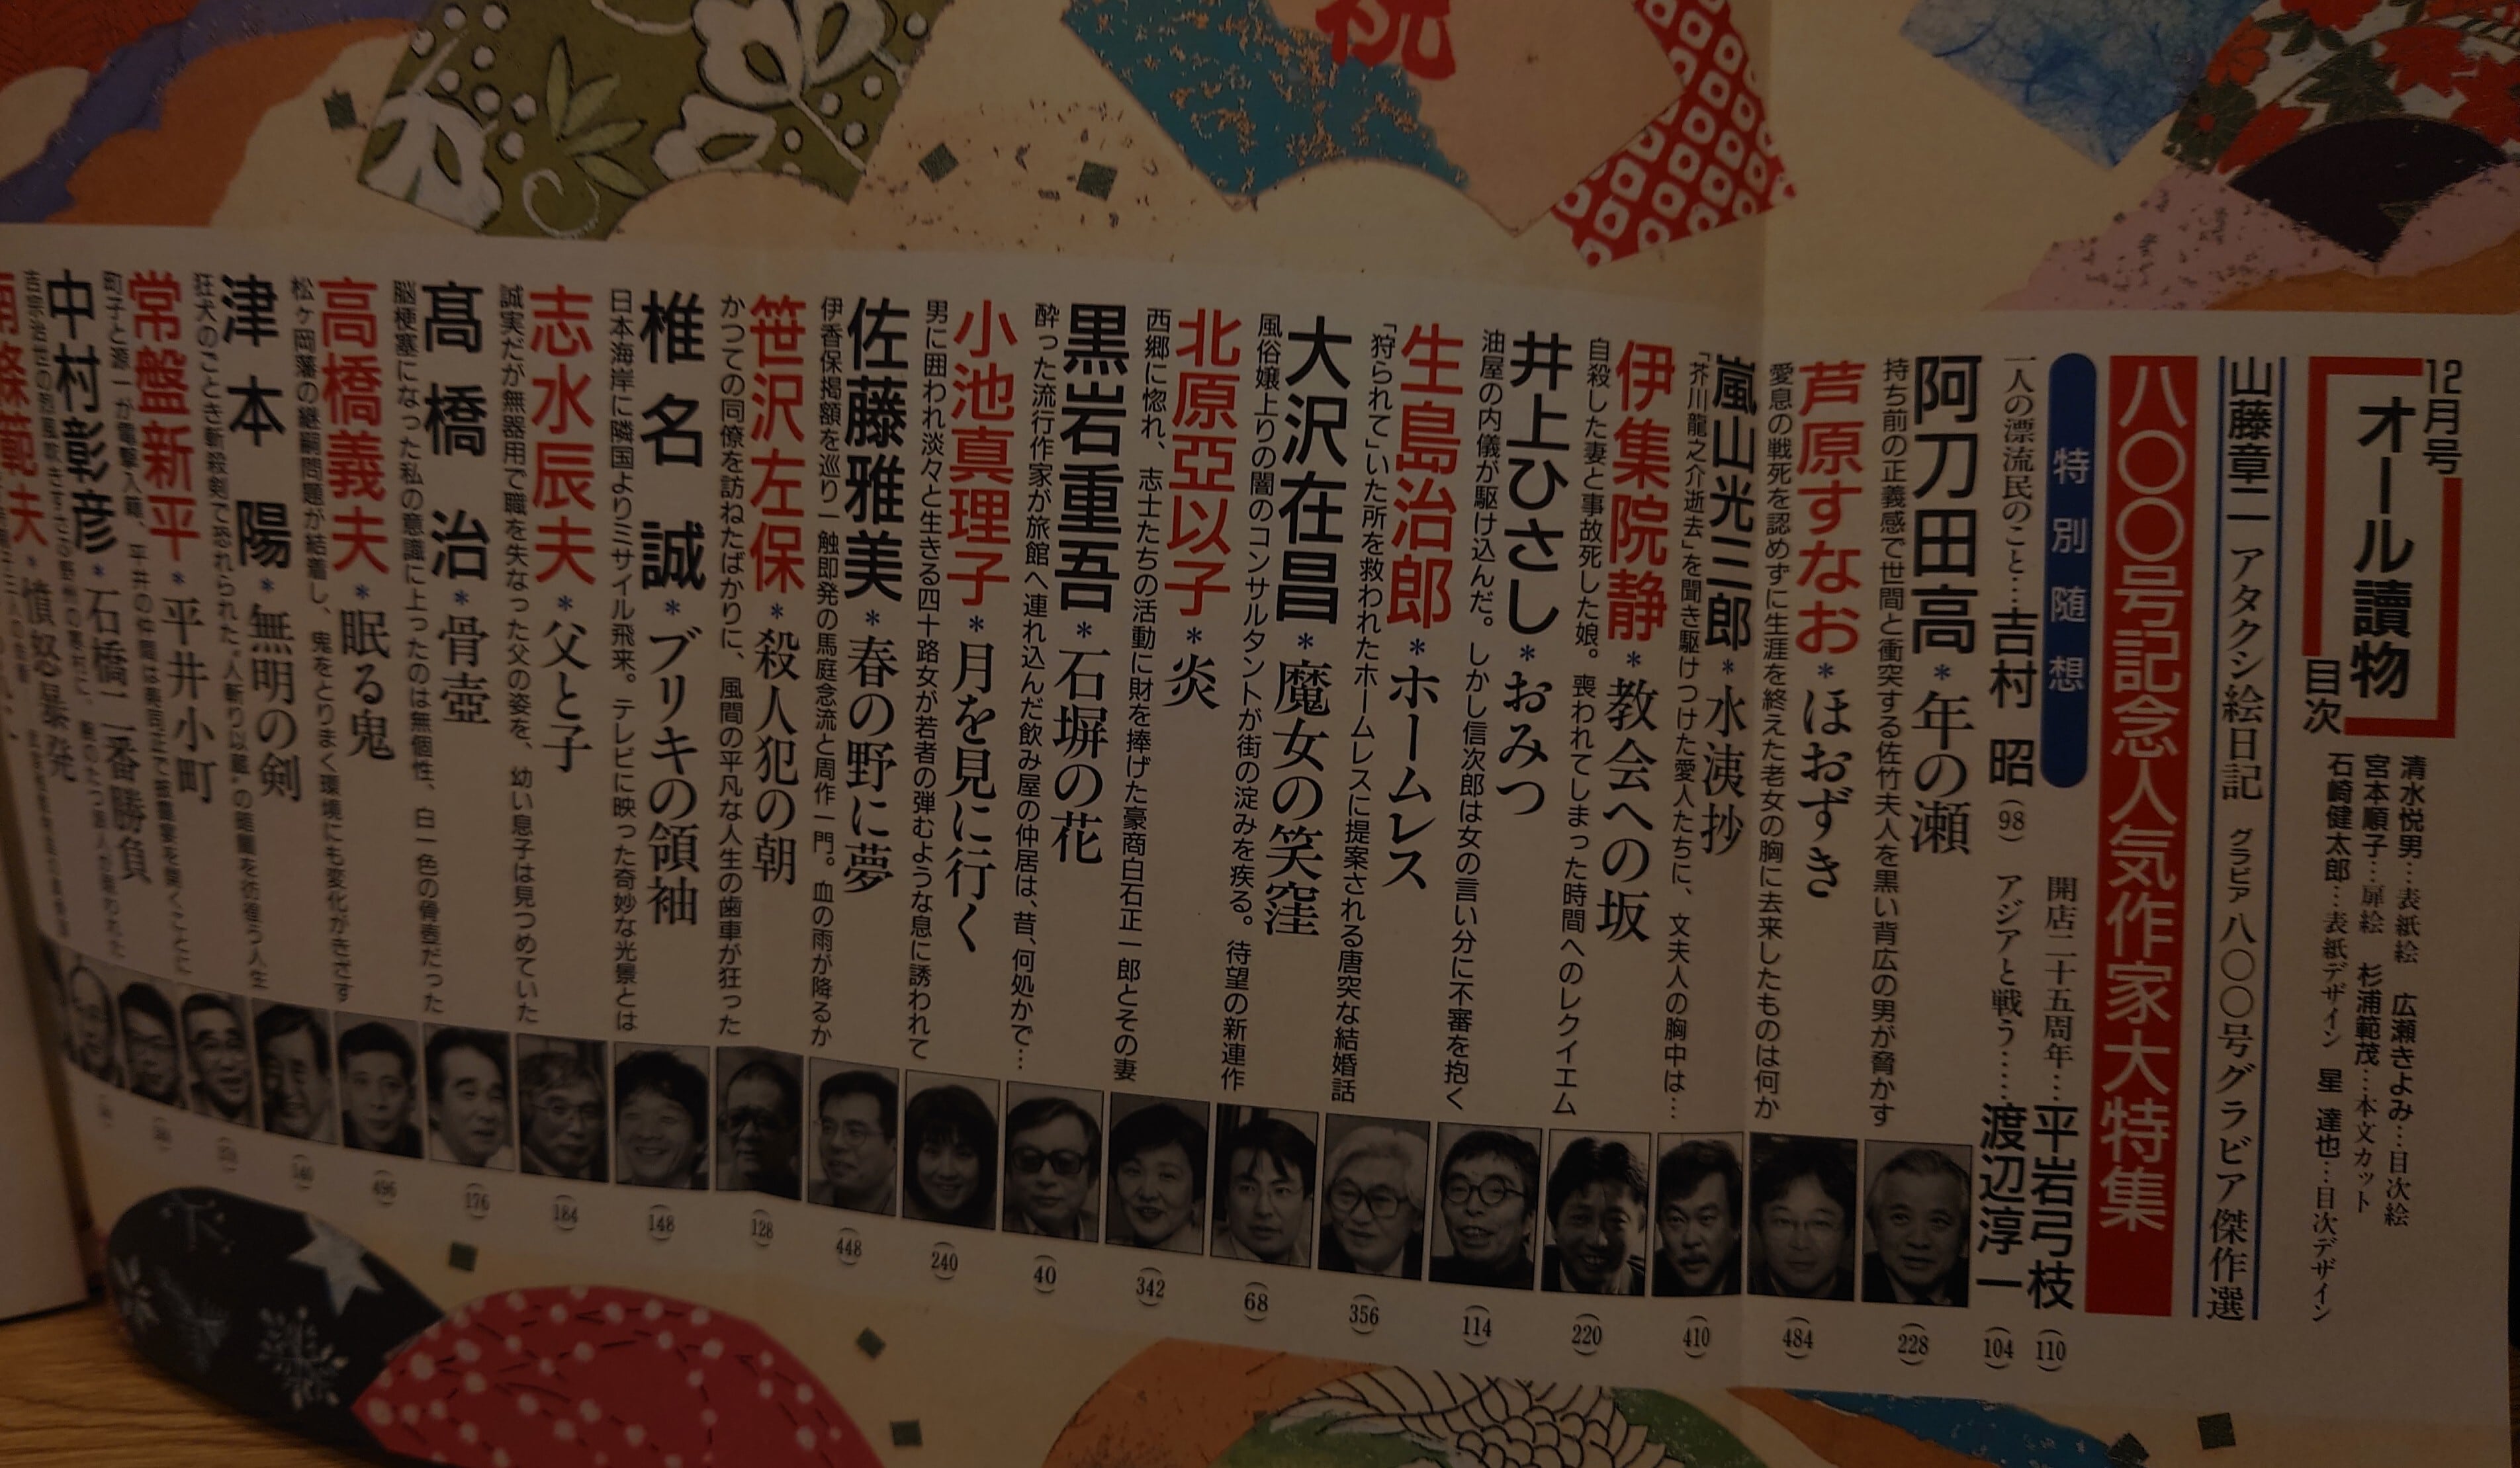 祝
12月号
オール讀物
目次
清水悦男…表紙絵　広瀬きよみ…目次絵
宮本順子…扉絵　杉浦範茂…本文カット
石崎健太郎…表紙デザイン　星　達也…目次デザイン
山藤章二　アタクシ絵日記　グラビア　八〇〇号グラビア傑作選
八〇〇号記念人気作家大特集
特別随想
開店二十五周年…平岩弓枝(110)
一人の漂流民のこと…吉村　昭(98)
アジアと戦う……渡辺淳一(104)
阿刀田高*年の瀬
持ち前の正義感で世間と衝突する佐竹夫人を黒い背広の男が脅かす
(228)
芦原すなお*ほおずき
愛息の戦死を認めずに生涯を終えた老女の胸に去来したものは何か
(484)
嵐山光三郎*水洟抄
「芥川龍之介逝去」を聞き駆けつけた愛人たちに、文夫人の胸中は…
(410)
伊集院静*教会への坂
自殺した妻と事故死した娘。喪われてしまった時間へのレクイエム
(220)
井上ひさし*おみつ
油屋の内儀が駆け込んだ。しかし信次郎は女の言い分に不審を抱く
(114)
生島治郎*ホームレス
「狩られて」いた所を救われたホームレスに提案される唐突な結婚話
(356)
大沢在昌*魔女の笑窪
風俗嬢上りの闇のコンサルタントが街の淀みを疾る。待望の新連作
(68)
北原亞以子*炎
西郷に惚れ、志士たちの活動に財を捧げた豪商白石正一郎とその妻
(342)
黒岩重吾*石塀の花
酔った流行作家が旅館へ連れ込んだ飲み屋の仲居は、昔、何処かで…
(40)
小池真理子*月を見に行く
男に囲われ淡々と生きる四十路女が若者の弾むような息に誘われて
(240)
佐藤雅美*春の野に夢
伊香保掲額を巡り一触即発の馬庭念流と周作一門。血の雨が降るか
(448)
笹沢左保*殺人犯の朝
かつての同僚を訪ねたばかりに、風間の平凡な人生の歯車が狂った
(128)
椎名　誠*ブリキの領袖
日本海岸に隣国よりミサイル飛来。テレビに映った奇妙な光景とは
(148)
志水辰夫*父と子
誠実だが無器用で職を失なった父の姿を、幼い息子は見つめていた
(184)
髙橋　治*骨壺
脳梗塞になった私の意識に上ったのは無個性、白一色の骨壺だった
(176)
高橋義夫*眠る鬼
松ヶ岡藩の継嗣問題が結着し、鬼をとりまく環境にも変化がきざす
(496)
津本　陽*無明の剣
狂犬のごとき斬殺剣で恐れられた〝人斬り以蔵〟の暗闇を彷徨う人生
常盤新平*平井小町
町子と源一が電撃入籍、平井の仲間は
中村彰彦*石橋山一番勝負